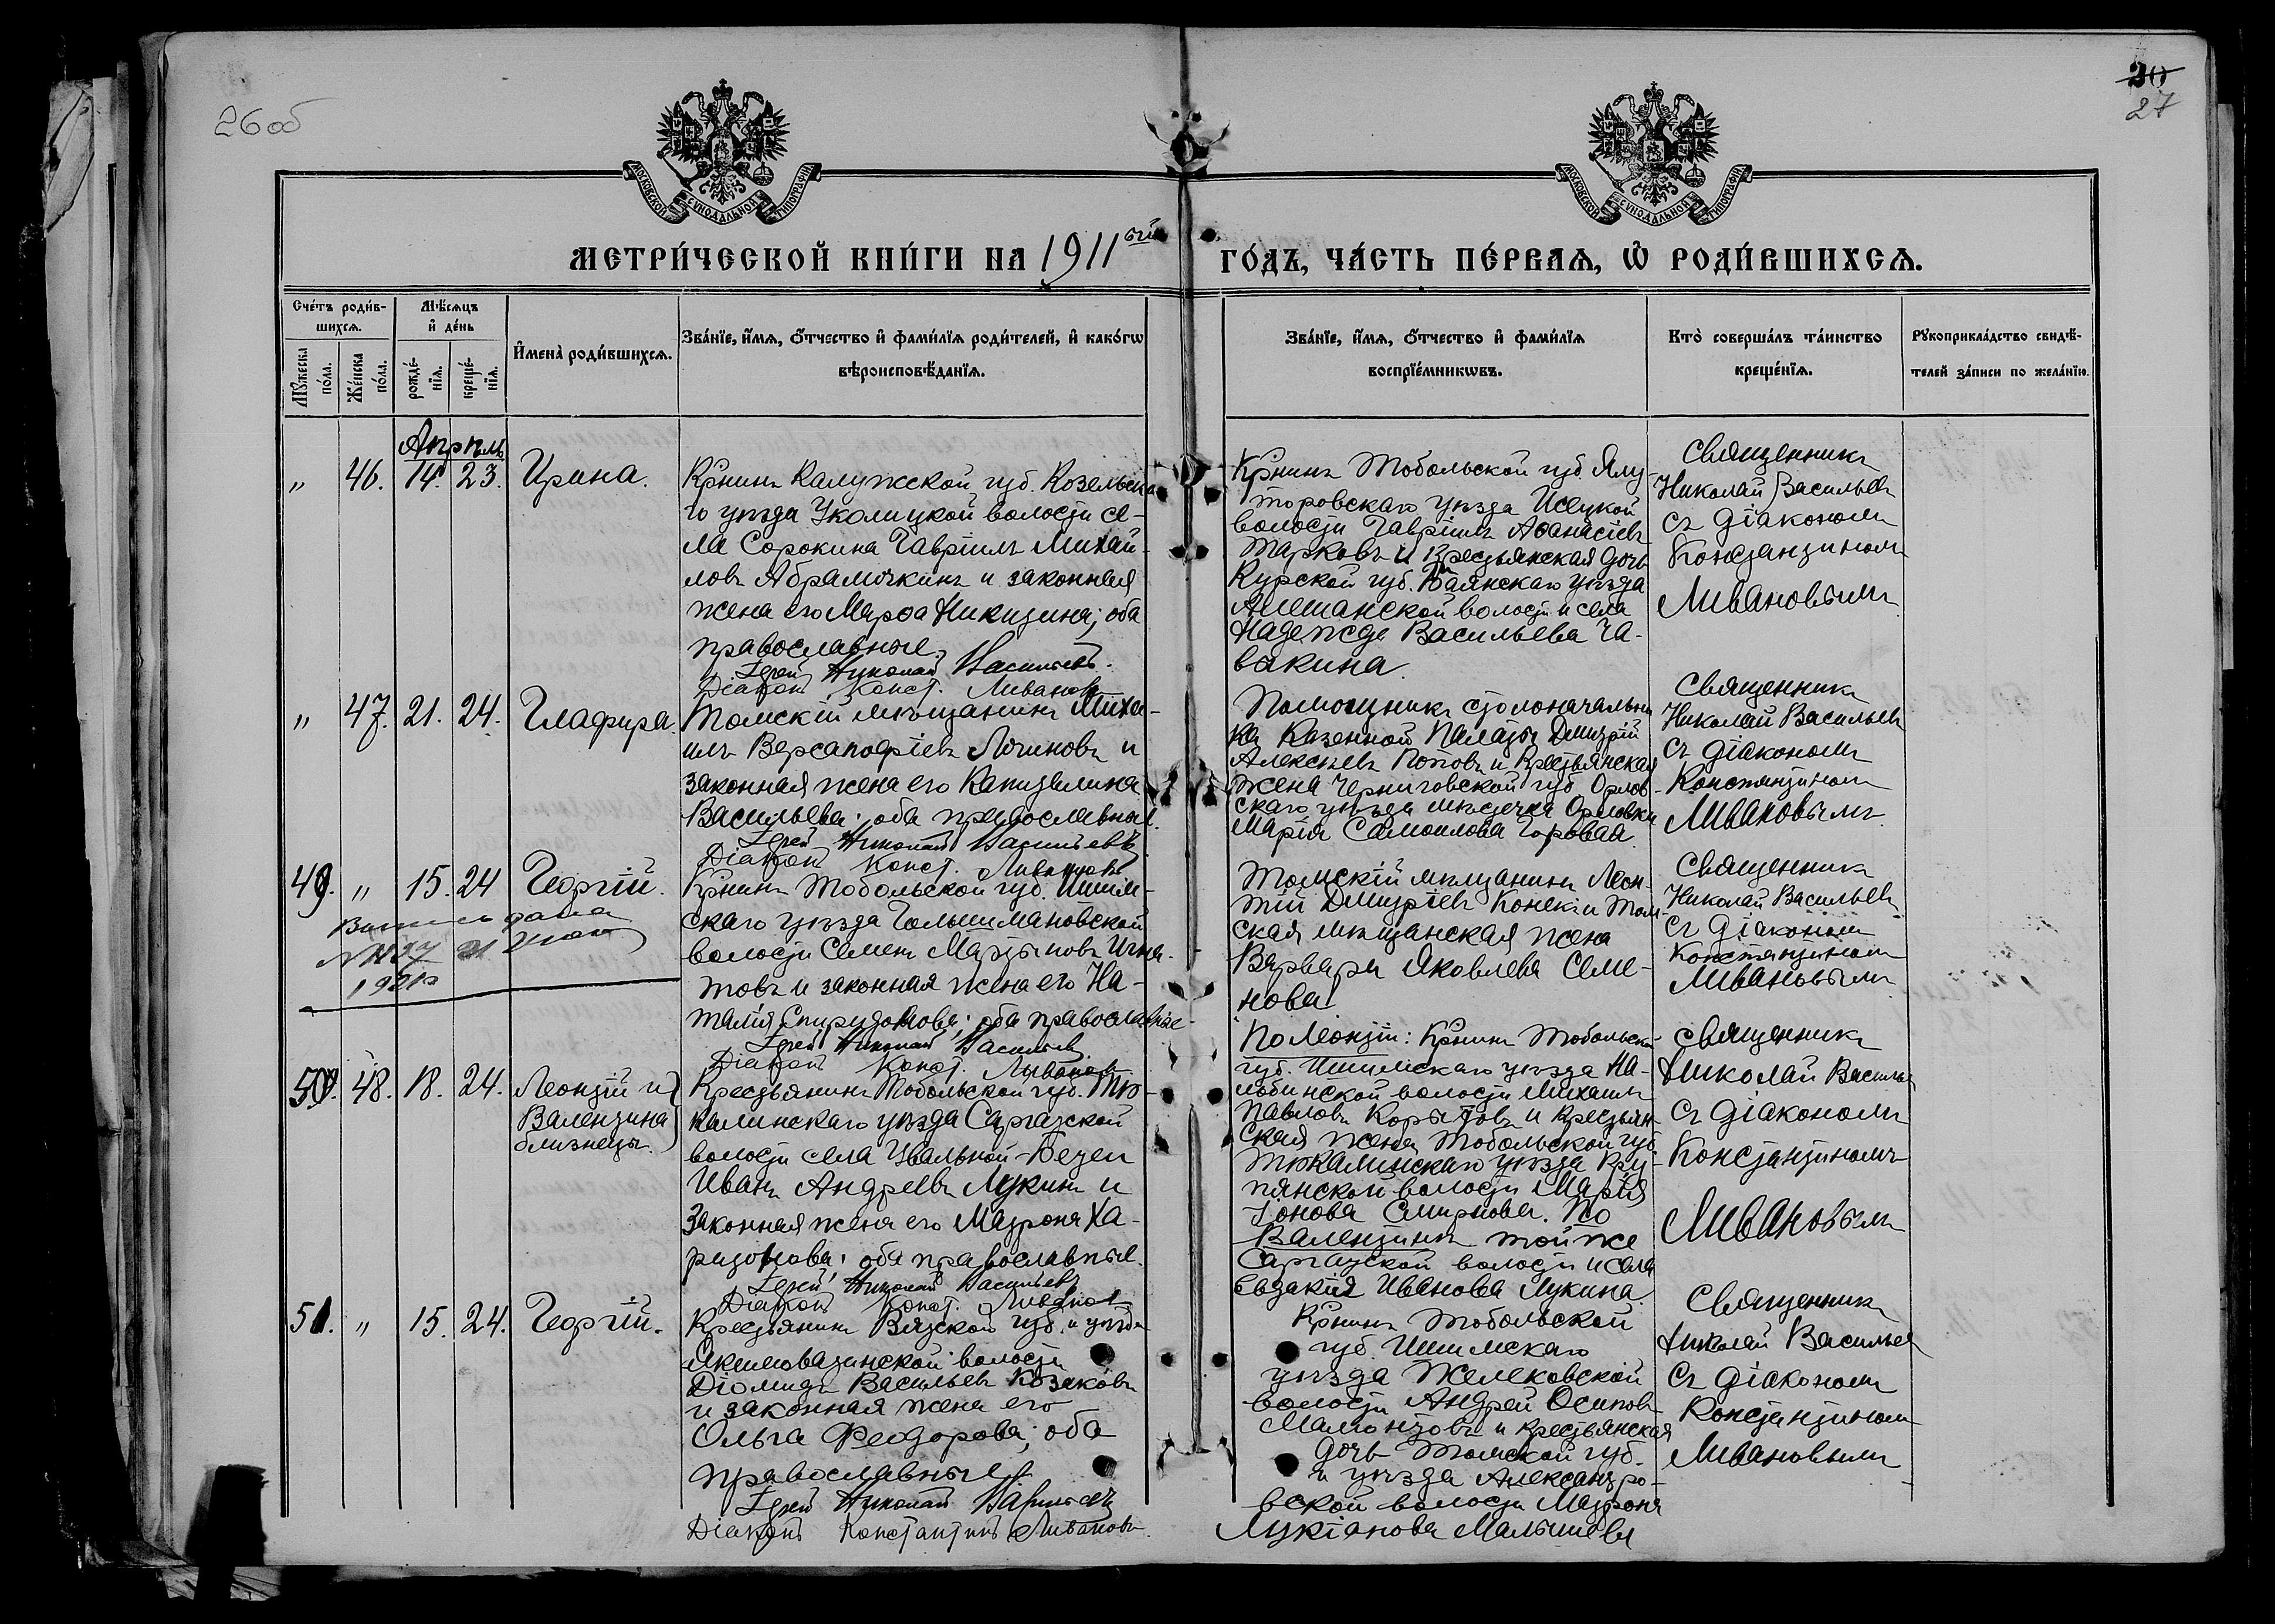 26 об
20
27
МОСКОВСКОЙ СѴНОДАЛЬНОЙ ТИПОГРАФІИ
МОСКОВСКОЙ СѴНОДАЛЬНОЙ ТИПОГРАФІИ
МЕТРИ́ЧЕСКОЙ КНИ́ГИ НА 1911ый ГО́ДЪ, ЧА́СТЬ ПЕ́РВАѦ, Ѡ РОДИ́ВШИХСѦ.
Сче́тъ роди́в-
шихсѧ.
Мꙋ́жеска по́ла.
Же́нска по́ла.
Мѣ́сѧцъ
и҆ де́нь
рожде́-
нїѧ.
креще́-
нїѧ.
И҆мена̀ роди́вшихсѧ.
Зва́нїе, и҆́мѧ, ѻ҆́тчество и҆ фами́лїѧ роди́телей, и҆ како́гѡ
вѣроисповѣ́данїѧ.
Зва́нїе, и҆́мѧ, ѻ҆́тчество и҆ фами́лїѧ
воспрїе́мникѡвъ.
Кто̀ соверша́лъ та́инство
креще́нїѧ.
Рꙋкоприкла́дство свидѣ́-
телей за́писи по жела́нїю.
Апрѣль
„ 46. 14. 23. Ирина.
Крнинъ Калужской губ. Козельска-
го уѣзда Уколицкой волости се-
ла Сорокина Гавріилъ Михай-
ловъ Абрамочкинъ и законная
жена его Марѳа Никитина; оба
православные.
Іерей Николай Васильевъ.
Діаконъ Конст. Ливановъ
Крнинъ Тобольской губ. Ялу-
торовскаго уѣзда Исецкой
волости Гавріилъ Аѳанасіевъ
Тарковъ и крестьянская дочь
Курской губ. уѣзда
Алешанской волости и села
Надежда Васильева Ча-
вакина.
Священникъ
Николай Васильевъ
съ діакономъ
Константиномъ
Ливановымъ
„ 47. 21. 24. Глафира.
Томскій мѣщанинъ Миха-
илъ Версанофіевъ Логиновъ и
законная жена его Капитолина
Васильева; оба православные.
Іерей Николай Васильевъ
Діаконъ Конст. Ливановъ
Помощникъ столоначальни-
ка Казенной Палаты Дмитрій
Алексѣевъ Поповъ и крестьянская
жена Черниговской губ. Орлов-
скаго уѣзда мѣстечка Орловки
Марія Самоилова Горовая.
Священникъ
Николай Васильевъ
съ діакономъ
Константиномъ
Ливановымъ.
49. „ 15. 24 Георгій.
Выпись дана
1921 г
Крнинъ Тобольской губ. Ишим-
скаго уѣзда Голышмановской
волости Семенъ Мартыновъ Игна-
товъ и законная жена его На-
талія Спиридонова; оба православные.
Іерей Николай Васильевъ
Діаконъ Конст. Ливановъ
Томскій мѣщанинъ Леон-
тій Дмитріевъ Конекъ и Том-
ская мѣщанская жена
Варвара Яковлева Семе-
нова.
Священникъ
Николай Васильевъ
съ діакономъ
Константиномъ
Ливановымъ
50. 48. 18. 24. Леонтій и
Валентина
близнецы.
Крестьянинъ Тобольской губ. Тю-
калинскаго уѣзда Саргатской
волости села Увальной-Бедеи
Иванъ Андреевъ Лукинъ и
законная жена его Матрона Ха-
ритонова; оба православные.
Іерей Николай Васильевъ
Діаконъ Конст. Ливановъ
По Леонтіи: Крнинъ Тобольской
губ. Ишимскаго уѣзда
волости Михаилъ
Павловъ Корытовъ и крестьян-
ская жена Тобольской губ.
Тюкалинскаго уѣзда Кру-
пянской волости Марія
Іонова Смирнова. По
Валентинѣ той же
Саргатской волости и села
Евдокія Иванова Лукина.
Священникъ
Николай Васильевъ
съ діакономъ
Константиномъ
Ливановымъ
51. „ 15. 24. Георгій.
Крестьянинъ Вятской губ. и уѣзда
Якимовагинской волости
Діомидъ Васильевъ Козаковъ
и законная жена его
Ольга Ѳеодорова; оба
православные
Іерей Николай Васильевъ
Діаконъ Константинъ Ливановъ.
Крнинъ Тобольской
губ. Ишимскаго
уѣзда Желековской
волости Андрей Осиповъ
Мамонтовъ и крестьянская
дочь Томской губ.
и уѣзда Александро-
вской волости Матрона
Лукіанова Малышева
Священникъ
Николай Васильевъ
съ діакономъ
Константиномъ
Ливановымъ